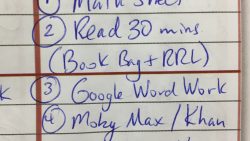 ① Math Sheet
② Read 30 mins
(Book Bag + RRL)
③ Google Word Work
④ Moby Max / Khan